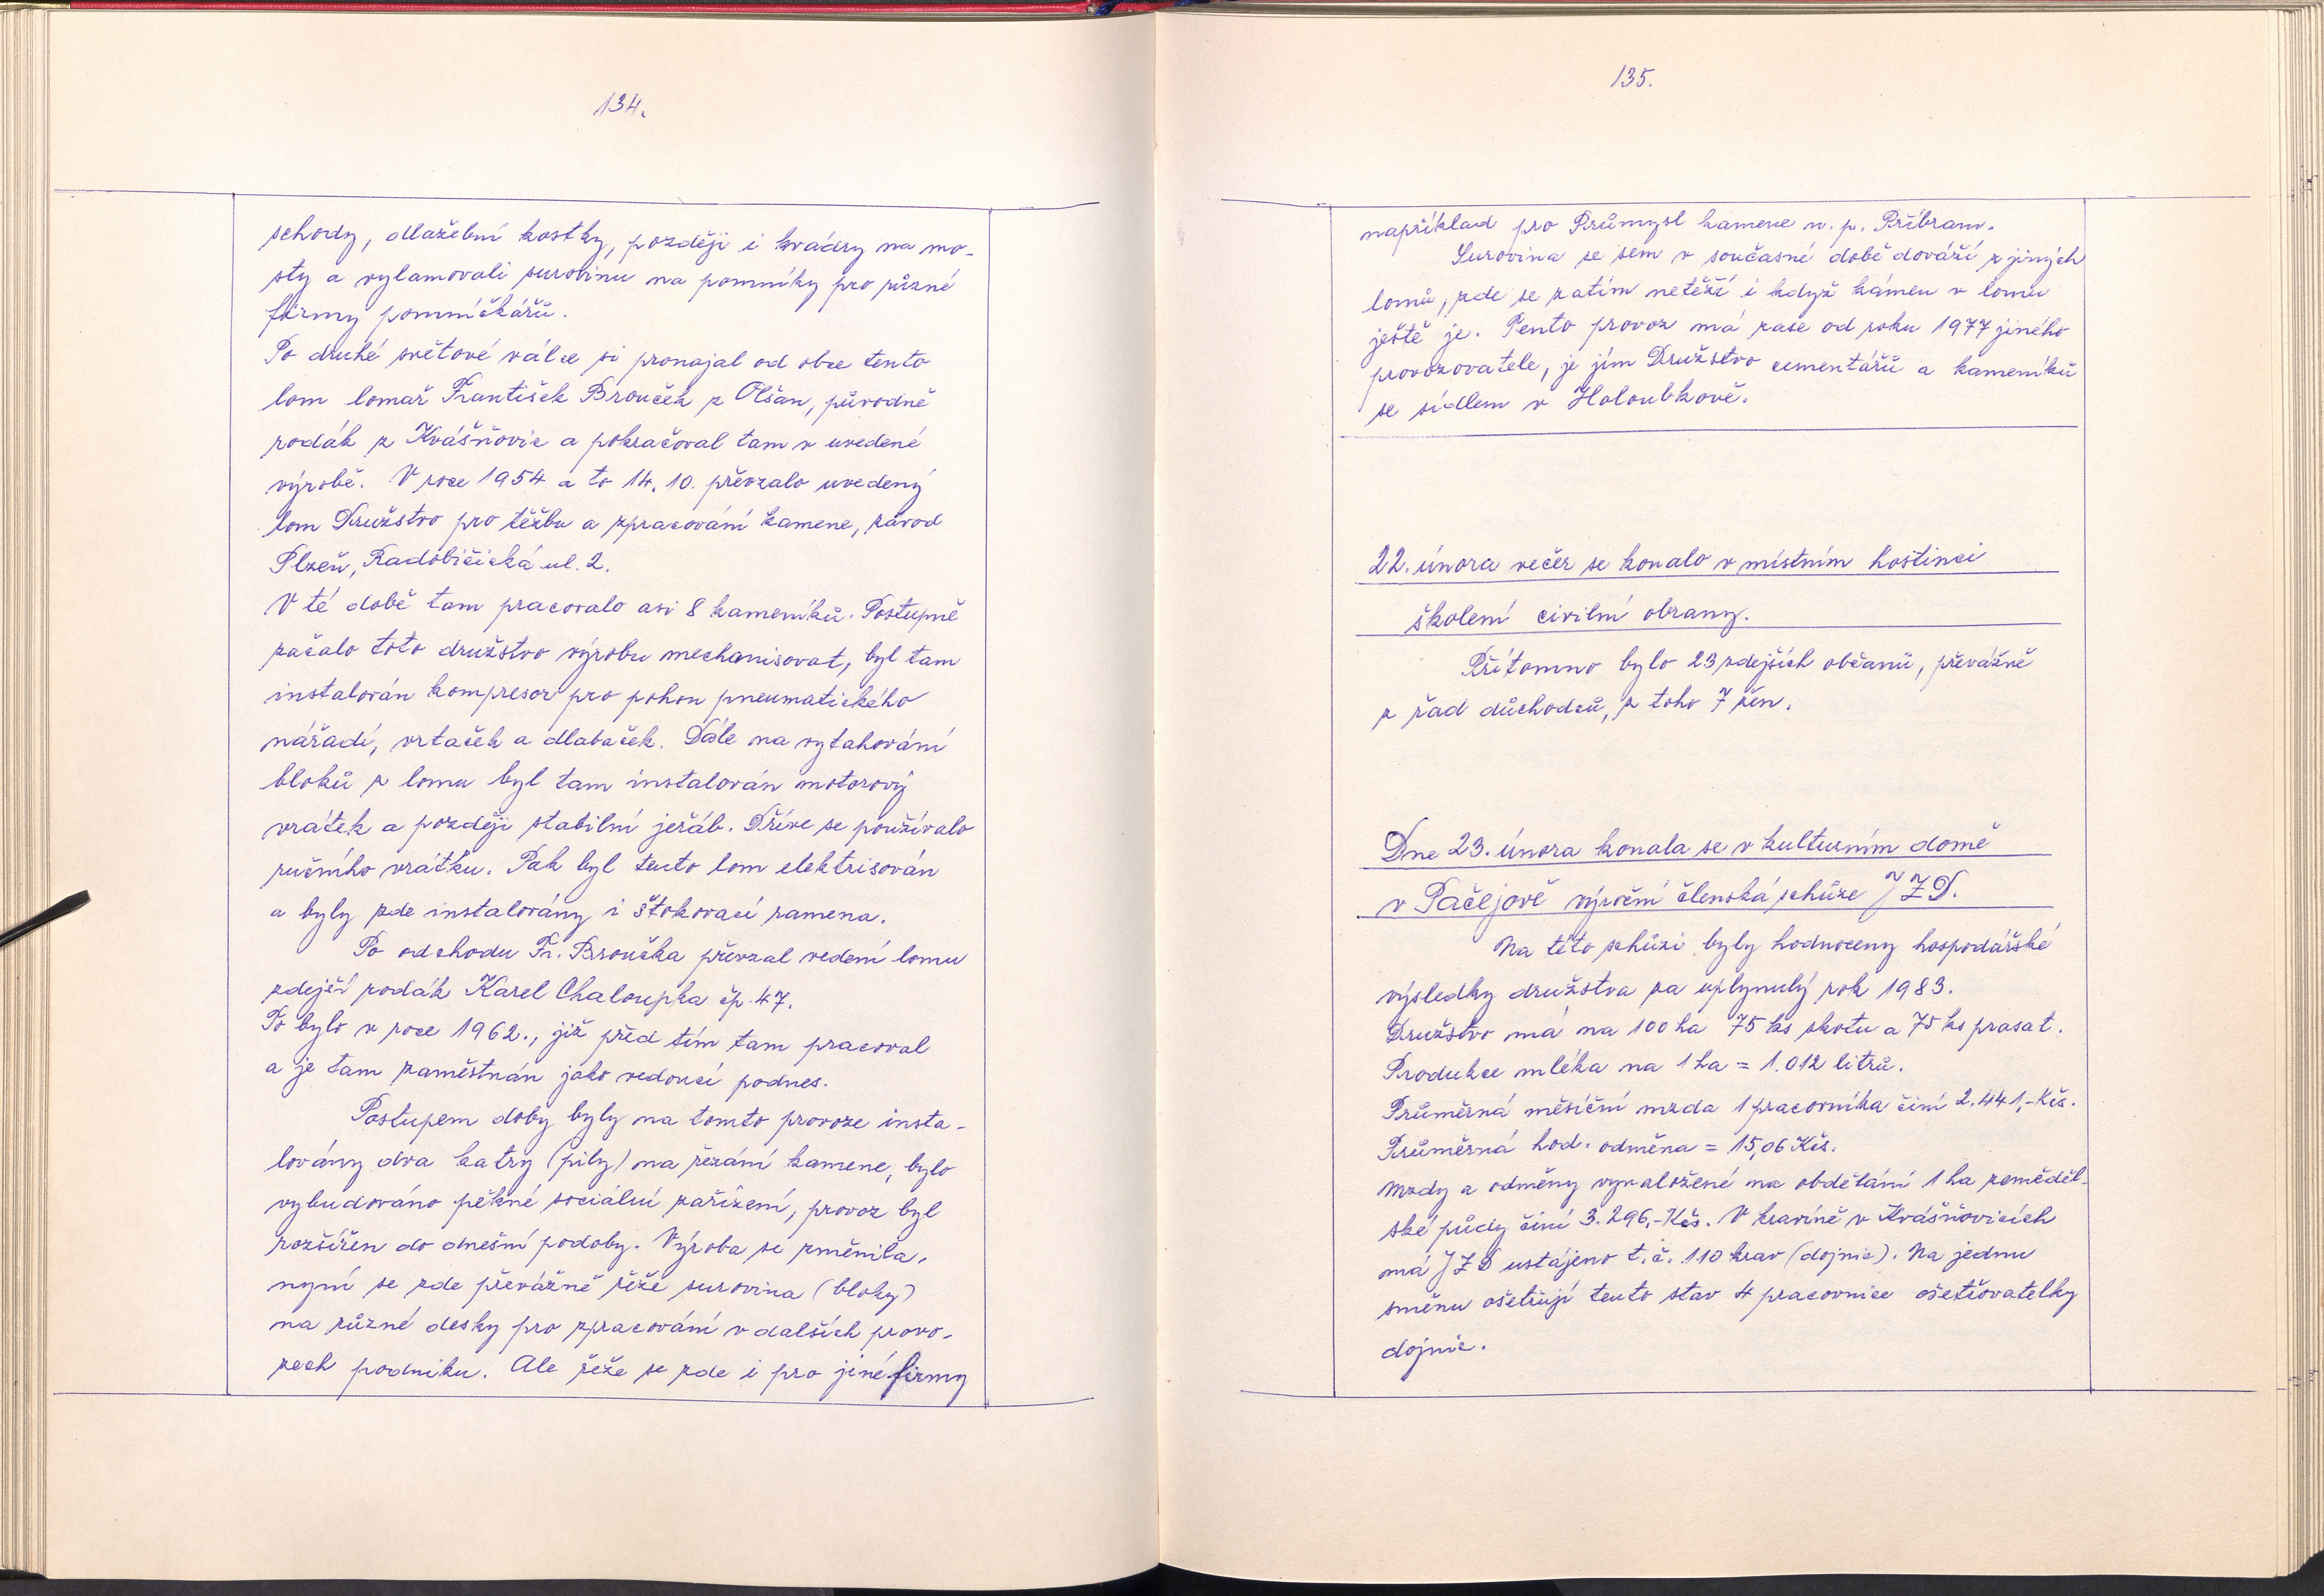 134.
schody, dlažební kostky, později i kvádry na mo-
sty a vylamovali surovinu na pomníky pro různé
firmy pomníčkářů.
Po druhé světové válce si pronajal od obce tento
lom lomař František Brouček z Olšan, původně
rodák z Kvášňovic a pokračoval tam v uvedené
výrobě. V roce 1954 a to 14. 10. převzalo uvedený
lom Družstvo pro těžbu a zpracování kamene, závod
Plzeň, Radobičická ul. 2.
V té době tam pracovalo asi 8 kameníků. Postupně
začalo toto družstvo výrobu mechanisovat, byl tam
instalován kompresor pro pohon pneumatického
nářadí, vrtaček a dlabaček. Dále na vytahování
bloků z lomu byl tam instalován motorový
vrátek a později stabilní jeřáb. Dříve se používalo
ručního vrátku. Pak byl tento lom elektrisován
a byly zde instalovány i štokovací ramena.
Po odchodu Fr. Broučka převzal vedení lomu
zdejší rodák Karel Chaloupka čp. 47.
To bylo v roce 1962., již před tím tam pracoval
a je tam zaměstnán jako vedoucí podnes.
Postupem doby byly na tomto provoze insta-
lovány dva katry (pily) na řezání kamene, bylo
vybudováno pěkné sociální zařízení, provoz byl
rozšířen do dnešní podoby. Výroba se změnila,
nyní se zde převážně řeže surovina (bloky)
na různé desky pro zpracování v dalších provo-
zech podniku. Ale řeže se zde i pro jiné firmy
135.
například pro Průmysl kamene n. p. Příbram.
Surovina se sem v současné době dováží z jiných
lomů, zde se zatím netěží i když kámen v lomu
ještě je. Tento provoz má zase od roku 1977 jiného
provozovatele, je jím Družstvo cementářů a kameníků
se sídlem v Holoubkově.
22. února večer se konalo v místním hostinci
školení civilní obrany.
Přítomno bylo 23 zdejších občanů, převážně
z řad důchodců, z toho 7 žen.
Dne 23. února konala se v kulturním domě
v Pačejově výroční členská schůze JZD.
Na této schůzi byly hodnoceny hospodářské
výsledky družstva za uplynulý rok 1983.
Družstvo má na 100 ha 75 ks skotu a 75 ks prasat.
Produkce mléka na 1 ha = 1.012 litrů.
Průměrná měsíční mzda 1 pracovníka činí 2.441,-Kčs.
Průměrná hod. odměna = 15,06 Kčs.
Mzdy a odměny vynaložené na obdělání 1 ha zeměděl-
ské půdy činí 3.296,-Kčs. V kravíně v Kvášňovicích
má JZD ustájeno t. č. 110 krav (dojnic). Na jednu
směnu ošetřují tento stav 4 pracovnice ošetřovatelky
dojnic.